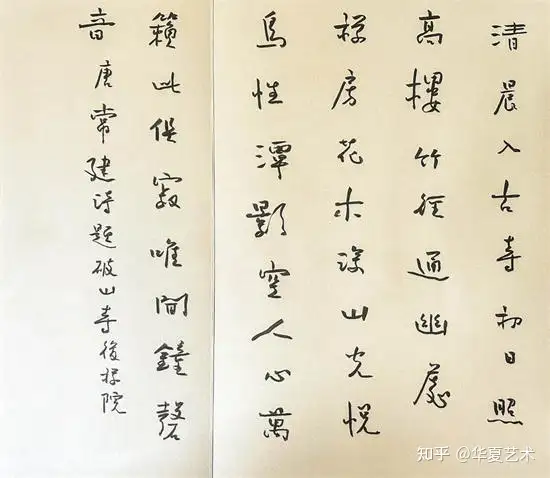 清晨入古寺初日照
高樓竹徑通幽處
禪房花木深山光悅
鳥性潭影空人心萬
籟此俱寂唯聞鐘磬
音 唐常建詩題破山寺後禪院
知乎 @华夏艺术